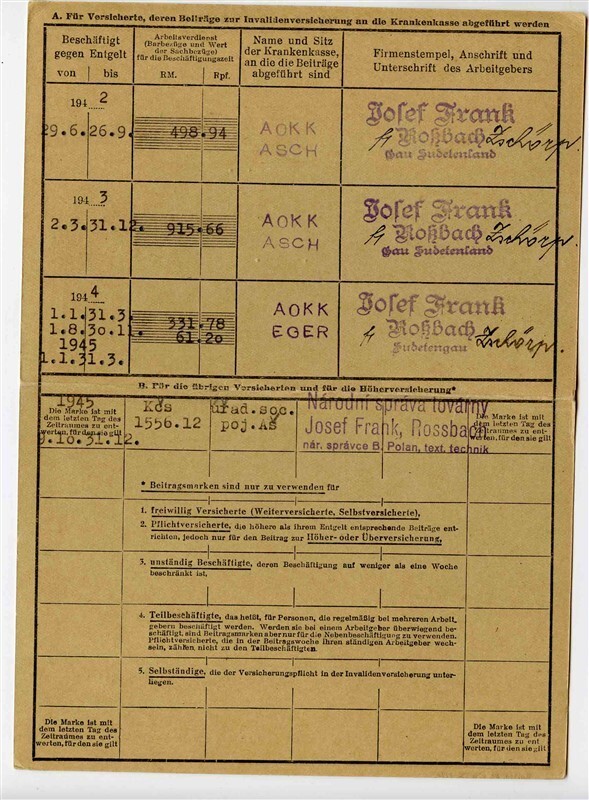 A. Für Versicherte, deren Beiträge zur Invalidenversicherung an die Krankenkasse abgeführt werden
Beschäftigt
gegen Entgelt
von bis
Arbeitsverdienst
(Barbezüge und Wert
der Sachbezüge)
für die Beschäftigungszeit
RM. Rpf.
Name und Sitz
der Krankenkasse,
an die die Beiträge
abgeführt sind
Firmenstempel, Anschrift und
Unterschrift des Arbeitgebers
194 2
29.6. 26.9.
498.94
AOKK
ASCH
Josef Frank
Roßbach Zschörp.
Gau Sudetenland
194 3
2.3. 31.12.
915.66
AOKK
ASCH
Josef Frank
Roßbach Zschörp.
Gau Sudetenland
194 4
1.1. 31.3.
1.8. 30.11.
1945
1.1. 31.3.
331.78
61.20
AOKK
EGER
Josef Frank
Roßbach Zschörp.
Sudetengau
B. Für die übrigen Versicherten und für die Höherversicherung*
1945
Die Marke ist mit
dem letzten Tag des
Zeitraumes zu ent-
werten, für den sie gilt
9.10. 31.12.
Kčs
1556.12
úřad.soc.
poj.Aš
Národní správa továrny
Josef Frank, Rossbach
nár. správce B. Polan, text. technik
Die Marke ist mit
dem letzten Tag des
Zeitraumes zu ent-
werten, für den sie gilt
* Beitragsmarken sind nur zu verwenden für
1. freiwillig Versicherte (Weiterversicherte, Selbstversicherte),
2. Pflichtversicherte, die höhere als ihrem Entgelt entsprechende Beiträge ent-
richten, jedoch nur für den Beitrag zur Höher- oder Überversicherung,
3. unständig Beschäftigte, deren Beschäftigung auf weniger als eine Woche
beschränkt ist,
4. Teilbeschäftigte, das heißt, für Personen, die regelmäßig bei mehreren Arbeit-
gebern beschäftigt werden. Werden sie bei einem Arbeitgeber überwiegend be-
schäftigt, sind Beitragsmarken aber nur für die Nebenbeschäftigung zu verwenden.
Pflichtversicherte, die in der Beitragswoche ihren ständigen Arbeitgeber wech-
seln, zählen nicht zu den Teilbeschäftigten.
5. Selbständige, die der Versicherungspflicht in der Invalidenversicherung unter-
liegen.
Die Marke ist mit
dem letzten Tag des
Zeitraumes zu ent-
werten, für den sie gilt
Die Marke ist mit
dem letzten Tag des
Zeitraumes zu ent-
werten, für den sie gilt